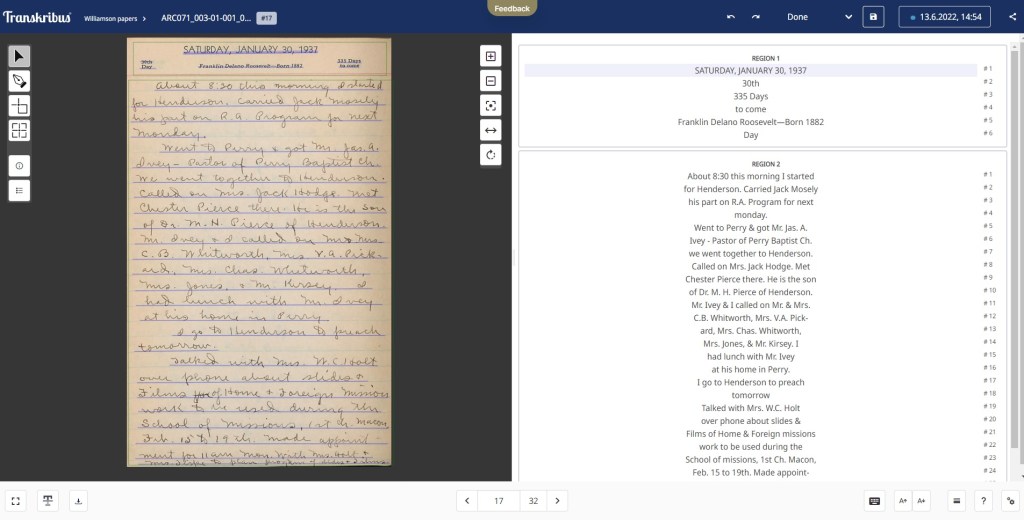 Feedback
Transkribus
Williamson papers > ARC071_003-01-001_0... #17
Done
13.6.2022, 14:54
SATURDAY, JANUARY 30, 1937
30th
Day
Franklin Delano Roosevelt—Born 1882
335 Days
to come
About 8:30 this morning I started
for Henderson. Carried Jack Mosely
his part on R.A. Program for next
Monday.
Went to Perry & got Mr. Jas. A.
Ivey - Pastor of Perry Baptist Ch.
We went together to Henderson.
Called on Mrs. Jack Hodge. Met
Chester Pierce there. He is the son
of Dr. M. H. Pierce of Henderson.
Mr. Ivey & I called on Mr & Mrs.
C.B. Whitworth, Mrs V.A. Pick-
ard, Mrs. Chas. Whitworth,
Mrs. Jones, & Mr. Kersey. I
had lunch with Mr. Ivey
at his home in Perry
I go to Henderson to preach
tomorrow.
Talked with Mrs. W.C. Holt
over phone about slides &
Films of Home & Foreign Missions
work to be used during the
School of Missions, 1st Ch. Macon,
Feb. 15 to 19th. Made appoint-
ment for 11 am Mon. with Mrs. Holt &
REGION 1
SATURDAY, JANUARY 30, 1937 #1
30th #2
335 Days #3
to come #4
Franklin Delano Roosevelt—Born 1882 #5
Day #6
REGION 2
About 8:30 this morning I started #1
for Henderson. Carried Jack Mosely #2
his part on R.A. Program for next #3
monday. #4
Went to Perry & got Mr. Jas. A. #5
Ivey - Pastor of Perry Baptist Ch. #6
we went together to Henderson. #7
Called on Mrs. Jack Hodge. Met #8
Chester Pierce there. He is the son #9
of Dr. M. H. Pierce of Henderson. #10
Mr. Ivey & I called on Mr. & Mrs. #11
C.B. Whitworth, Mrs. V.A. Pick- #12
ard, Mrs. Chas. Whitworth, #13
Mrs. Jones, & Mr. Kirsey. I #14
had lunch with Mr. Ivey #15
at his home in Perry. #16
I go to Henderson to preach #17
tomorrow #18
Talked with Mrs. W.C. Holt #19
over phone about slides & #20
Films of Home & Foreign missions #21
work to be used during the #22
School of missions, 1st Ch. Macon, #23
Feb. 15 to 19th. Made appoint- #24
< 17 32 >
A+ A+
?